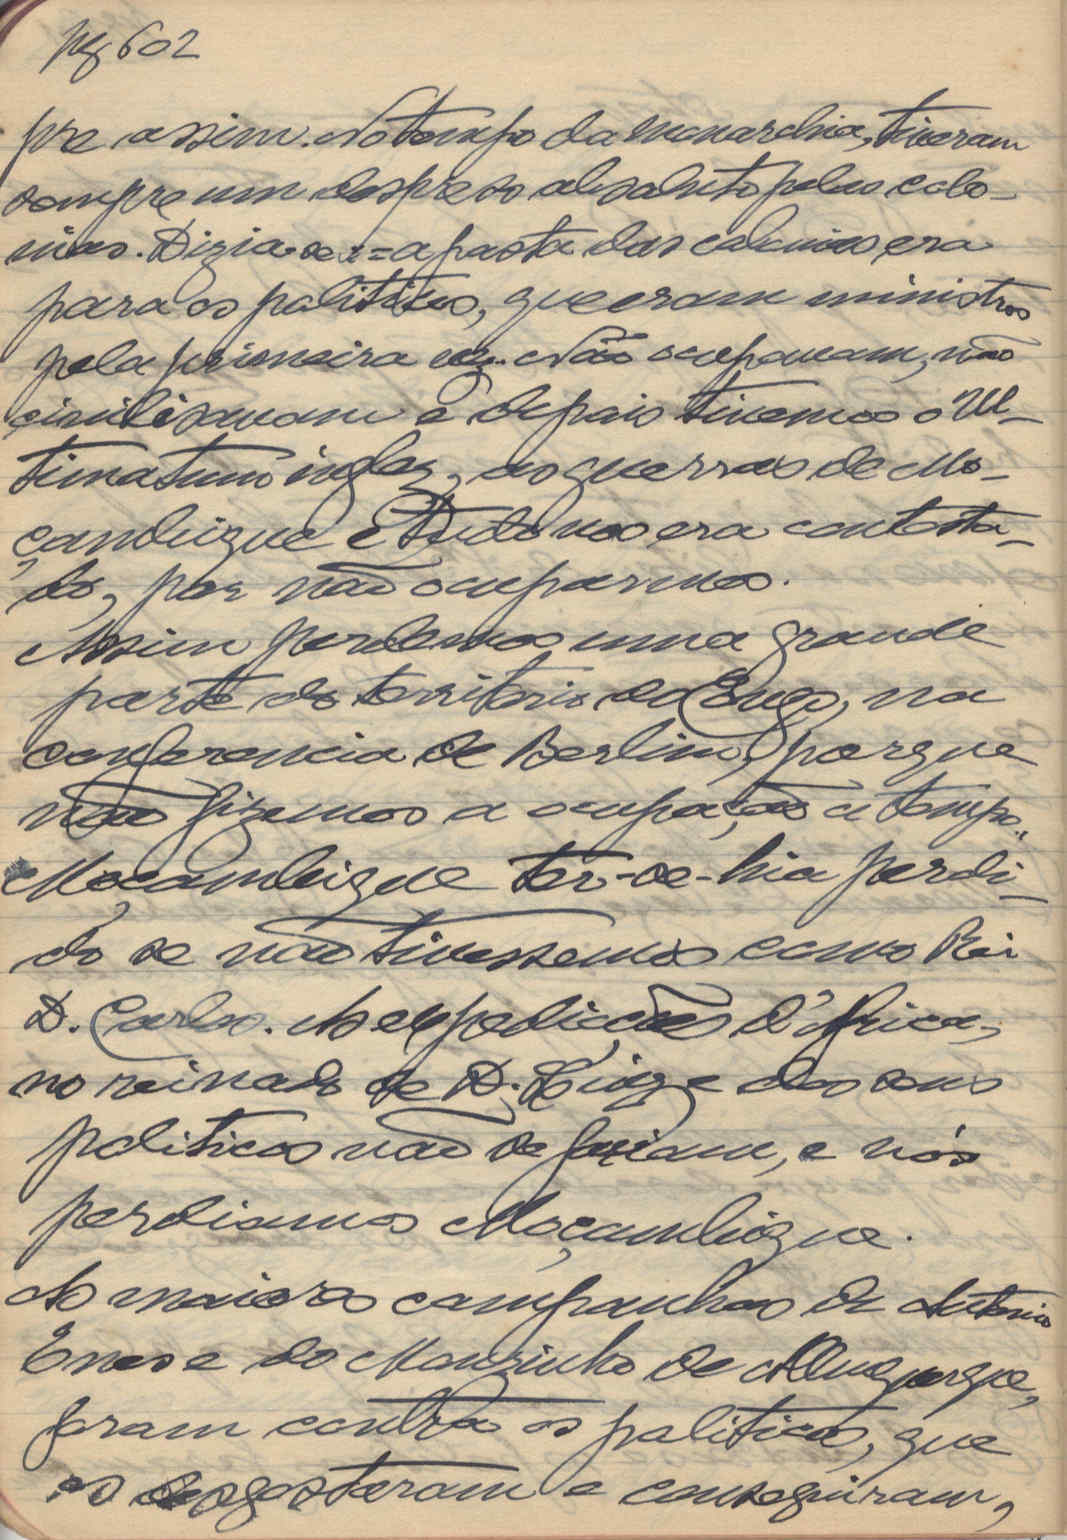 pg 602
pre assim. No tempo da monarchia, tiveram
sempre um despreso absoluto pelas colo-
nias. Dizia-se := a pasta das colonias era
para os politicos, que eram ministros
pela primeira vez. Não ocupavam, não
civilisavam e depois tivemos o Ul-
timatum inglez, as guerras de Mo-
çambique e Tudo nos era contesta-
do, por não ocuparmos.
Assim perdemos uma grande
parte do territorio do Congo, na
conferencia de Berlim, porque
não fizemos a ocupação a tempo.
Moçambique ter-se-hia perdi-
do se não tivessemos como Rei
D. Carlos. As expedicções d'Africa,
no reinado de D. Luiz e dos seus
politicos não se faziam, e nós
perdiamos Moçambique.
As maiores campanhas de Antonio
Enes e do Mouzinho de Albuquerque,
foram contra os politicos, que
os desgostaram e conseguiram,